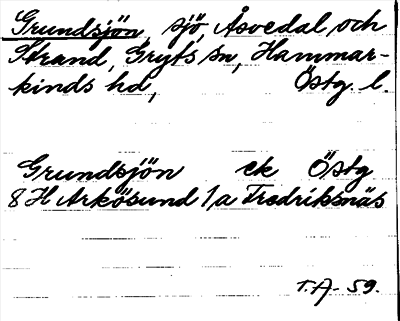 Grundsjön, sjö, Åsvedal och
Strand, Gryts sn, Hammar-
kinds hd, Östg. l.
Grundsjön ek Östg
8 H Arkösund 1/a Fredriksnäs
T.A- 59.